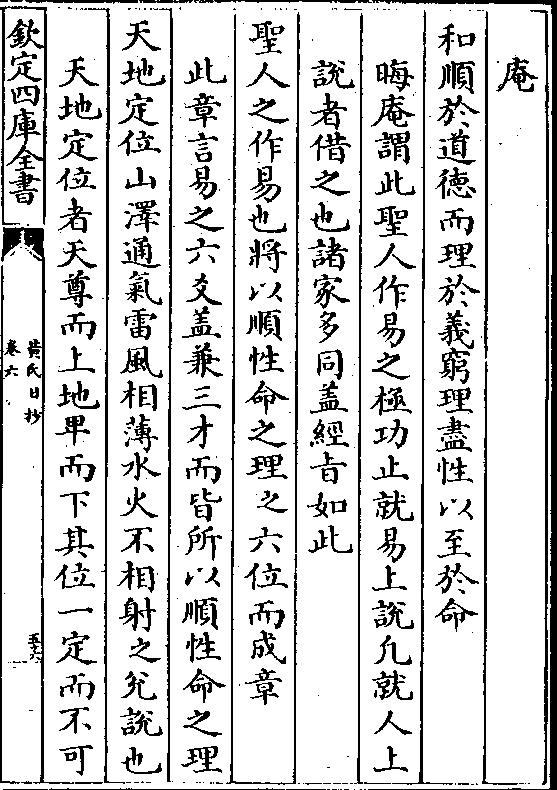 庵
和順於道德而理於義窮理盡性以至於命
晦庵謂此聖人作易之極功止就易上說凡就人上
說者借之也諸家多同盖經㫖如此
聖人之作易也將以順性命之理之六位而成章
此章言易之六爻盖兼三才而皆所以順性命之理
天地定位山澤通氣雷風相薄水火不相射之兊說也
天地定位者天尊而上地卑而下其位一定而不可
欽定四庫全書
黄氏日抄
卷六
五十六